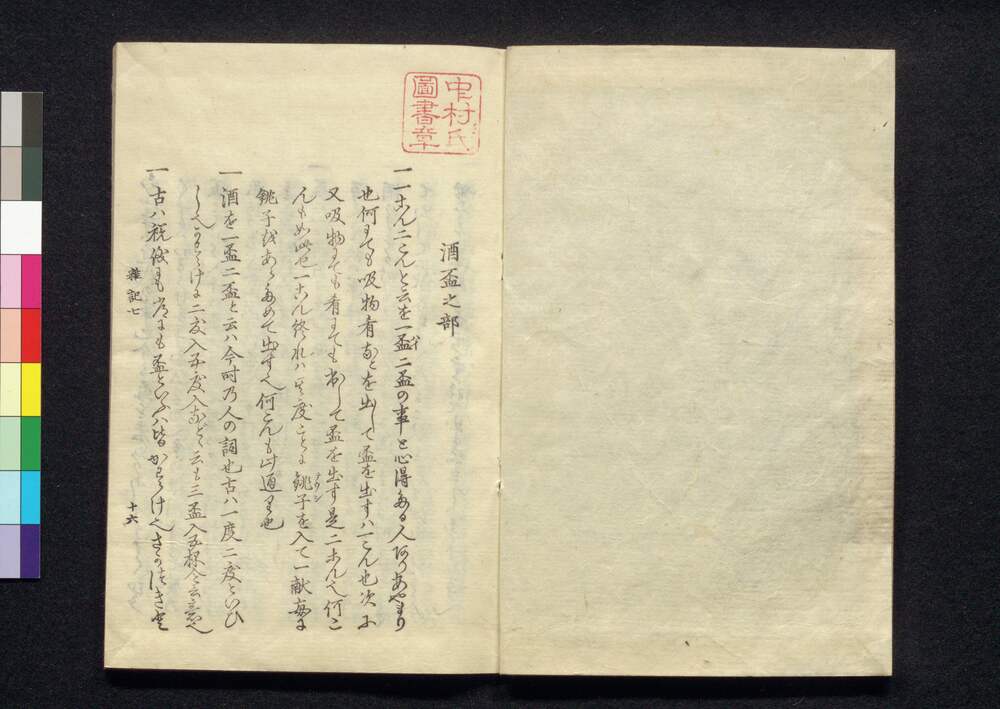 中村氏
圖書章
酒盃之部
一一こん二こんと云を一盃二盃の事と心得たる人ありあやまり
也何にても吸物肴などを出して盃を出すハ一こん也次に
又吸物にても肴にても出して盃を出す是二こん也何こ
んも如此也一こん終れハ其度ことに銚子を入て一献毎に
銚子をあらためて出す也何こんも此通り也
一酒を一盃二盃と云ハ今時乃人の詞也古ハ一度二度といひ
しなりかはらけに二度入五度入など云も三盃入五杯入と云意也
一古ハ祝儀にも常にも盃といふハ皆かはらけ也さかつき
雜記七
十六